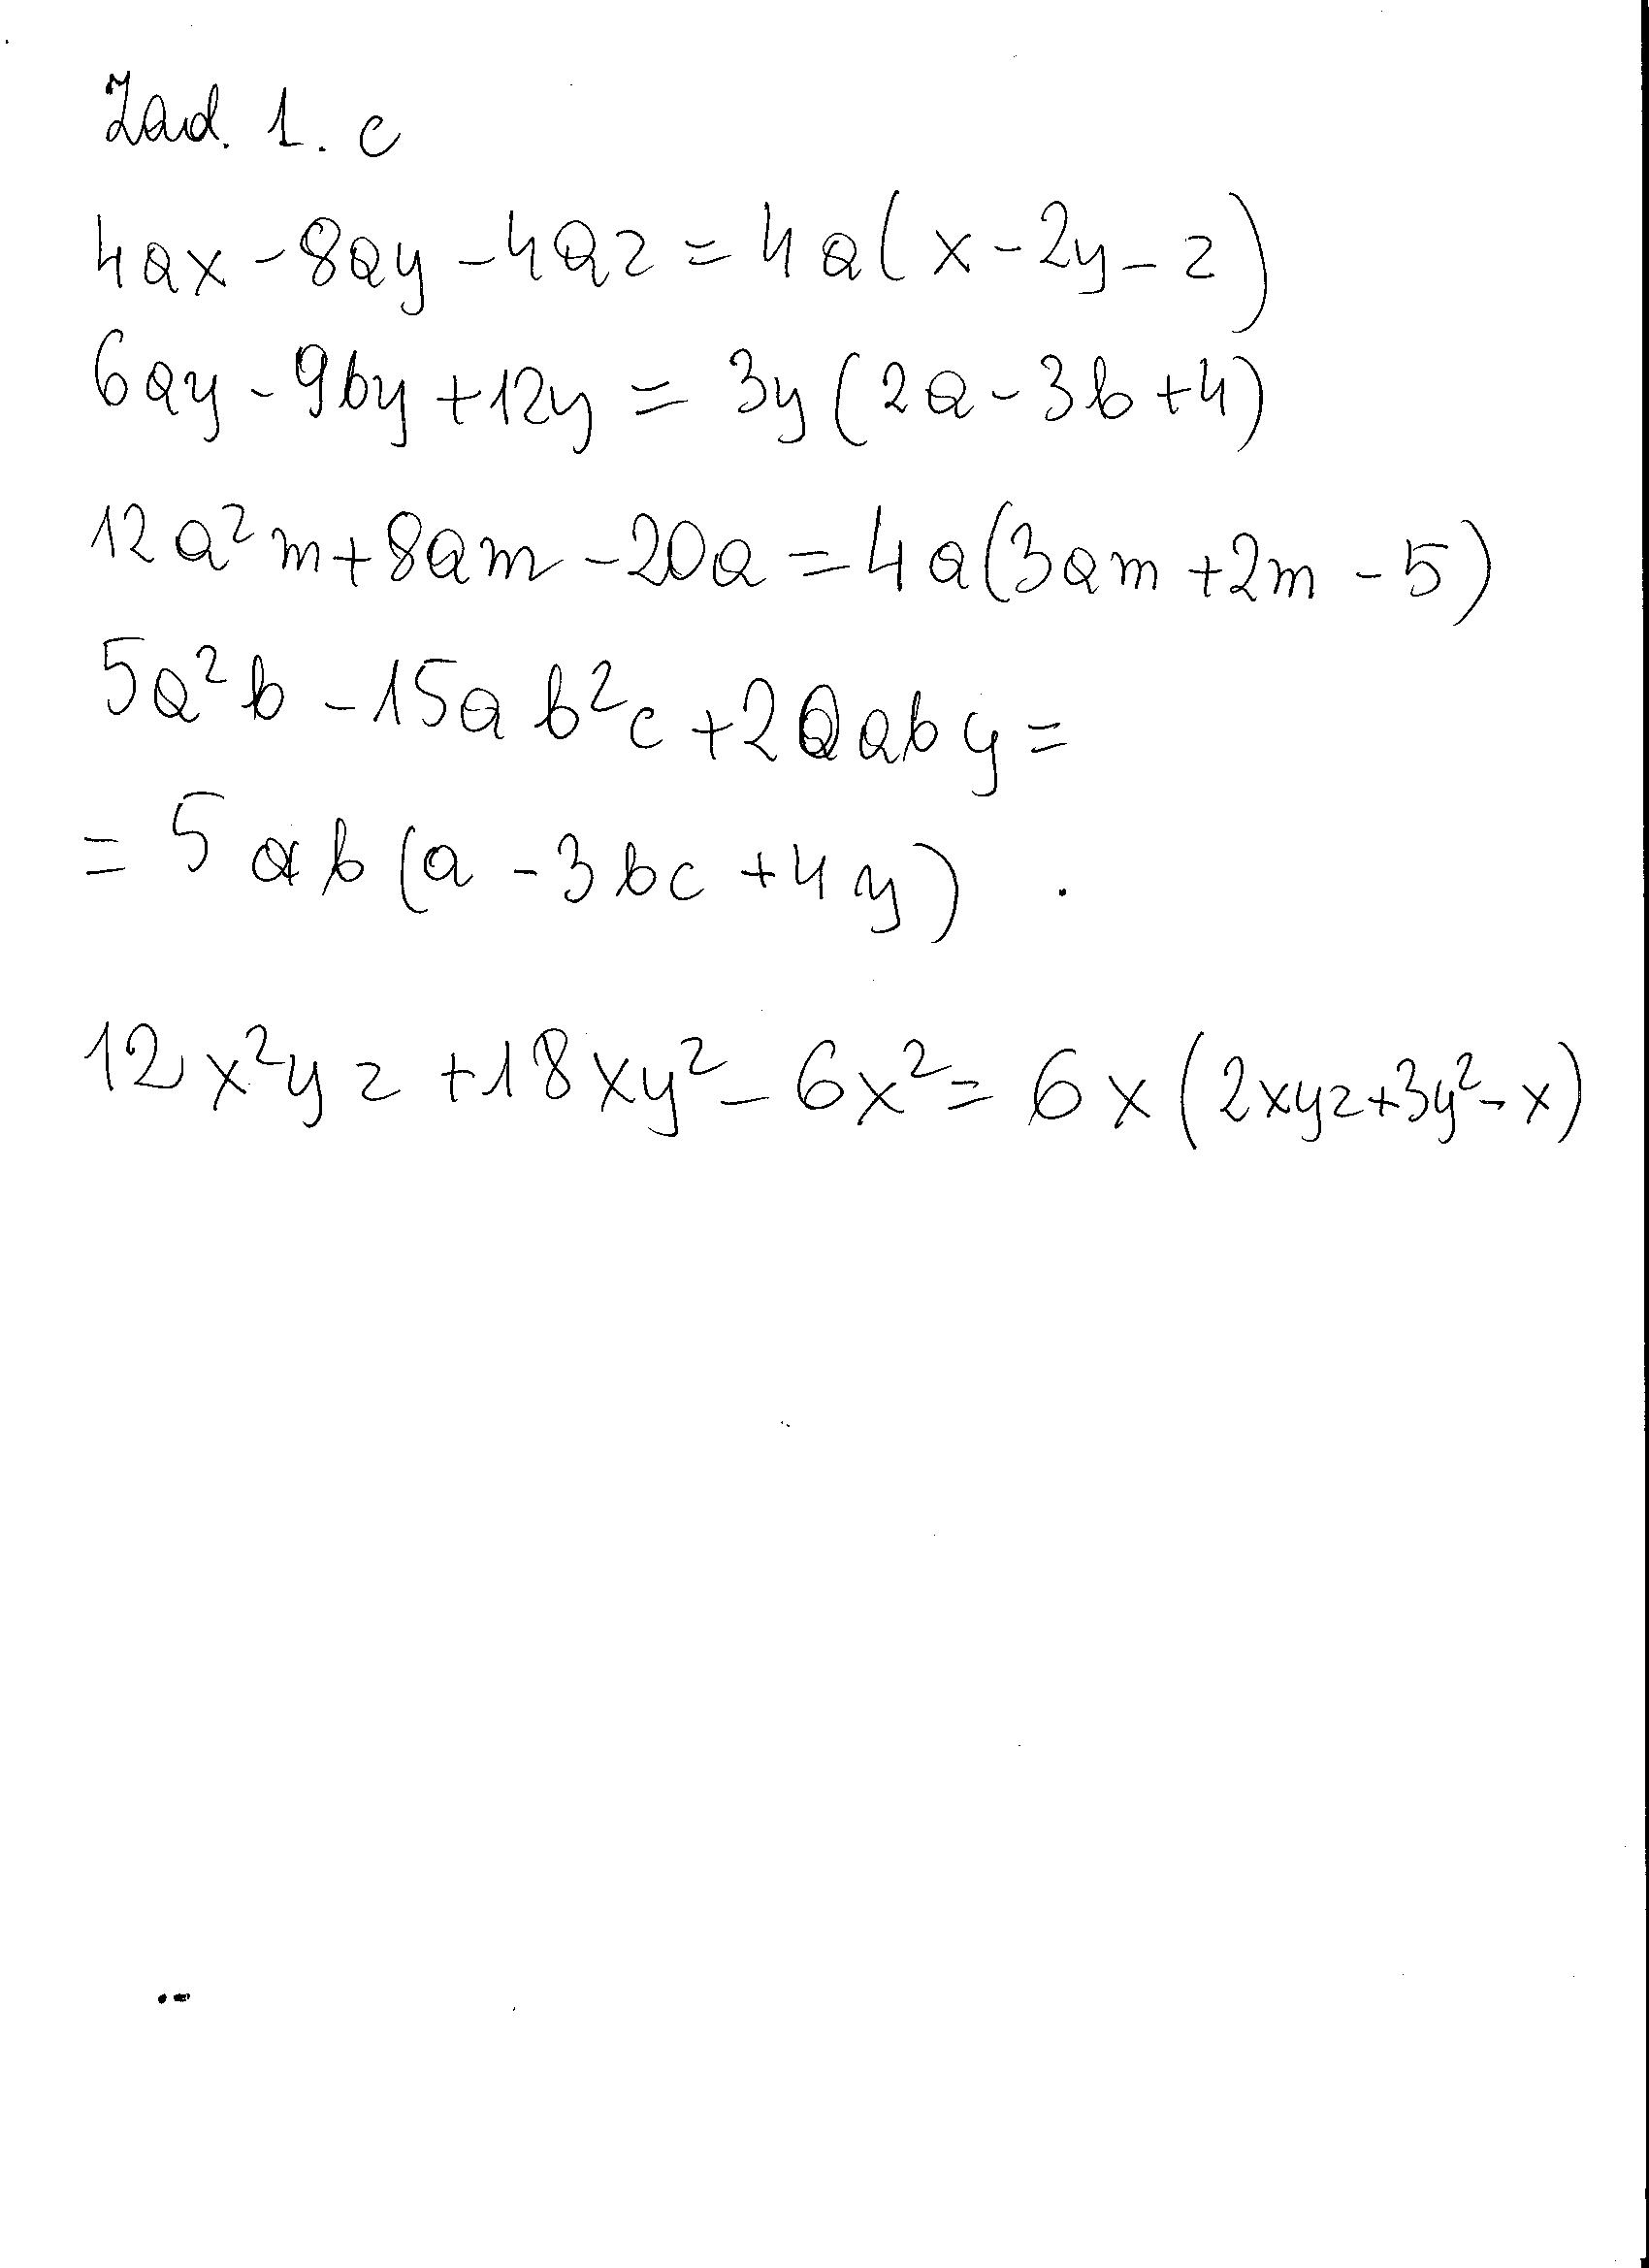 Zad. 1. c
4ax - 8ay - 4az = 4a(x - 2y - z)
6ay - 9by + 12y = 3y(2a - 3b + 4)
12a²m + 8am - 20a = 4a(3am + 2m - 5)
5a²b - 15ab²c + 20aby =
= 5ab(a - 3bc + 4y)
12x²yz + 18xy² - 6x² = 6x(2xyz + 3y² - x)